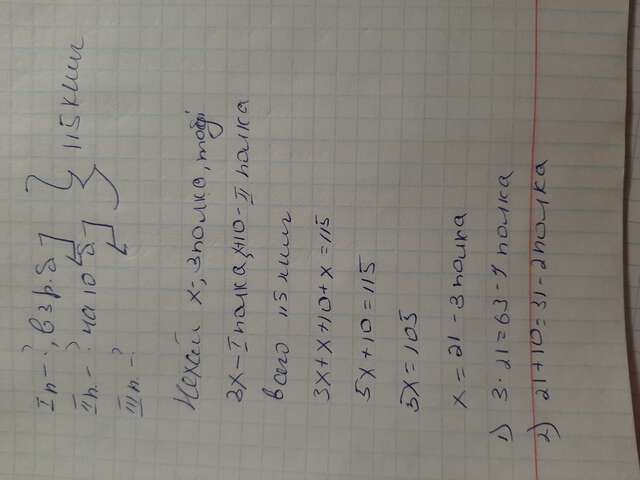 I п - ?, в 3 р. б.
II п. - ? на 10 б.
III п. - ?
115 книг
Нехай x - 3 полка, тоді
3x - I полка, x+10 - II полка
всего 115 книг
3x+x+10+x=115
5x+10=115
5x=105
x=21 - 3 полка
1) 3·21=63 - 1 полка
2) 21+10=31 - 2 полка